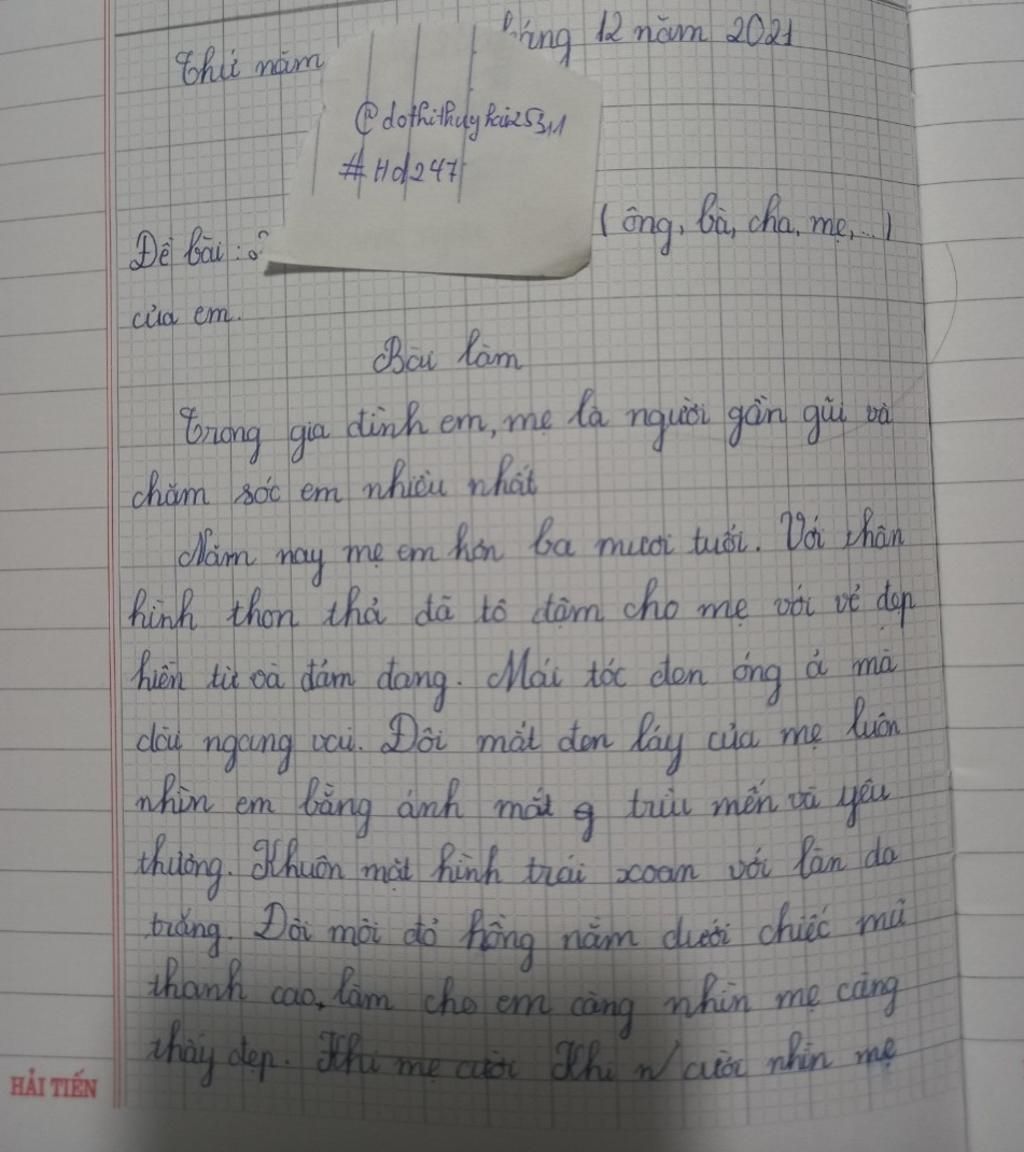 Thứ năm tháng 12 năm 2021
@dothithuyhai25311
#Hd247
Đề bài: (ông, bà, cha, mẹ,...)
của em.
Bài làm
Trong gia đình em, mẹ là người gần gũi và
chăm sóc em nhiều nhất
Năm nay mẹ em hơn ba mươi tuổi. Với thân
hình thon thả đã tô đậm cho mẹ với vẻ đẹp
hiền từ và đảm đang. Mái tóc đen óng ả mà
dài ngang vai. Đôi mắt đen láy của mẹ luôn
nhìn em bằng ánh mắt g trìu mến và yêu
thương. Khuôn mặt hình trái xoan với làn da
trắng. Đôi môi đỏ hồng nằm dưới chiếc mũi
thanh cao, làm cho em càng nhìn mẹ càng
thấy đẹp. Khi mẹ cười Khi n/ cười nhìn mẹ
HẢI TIẾN